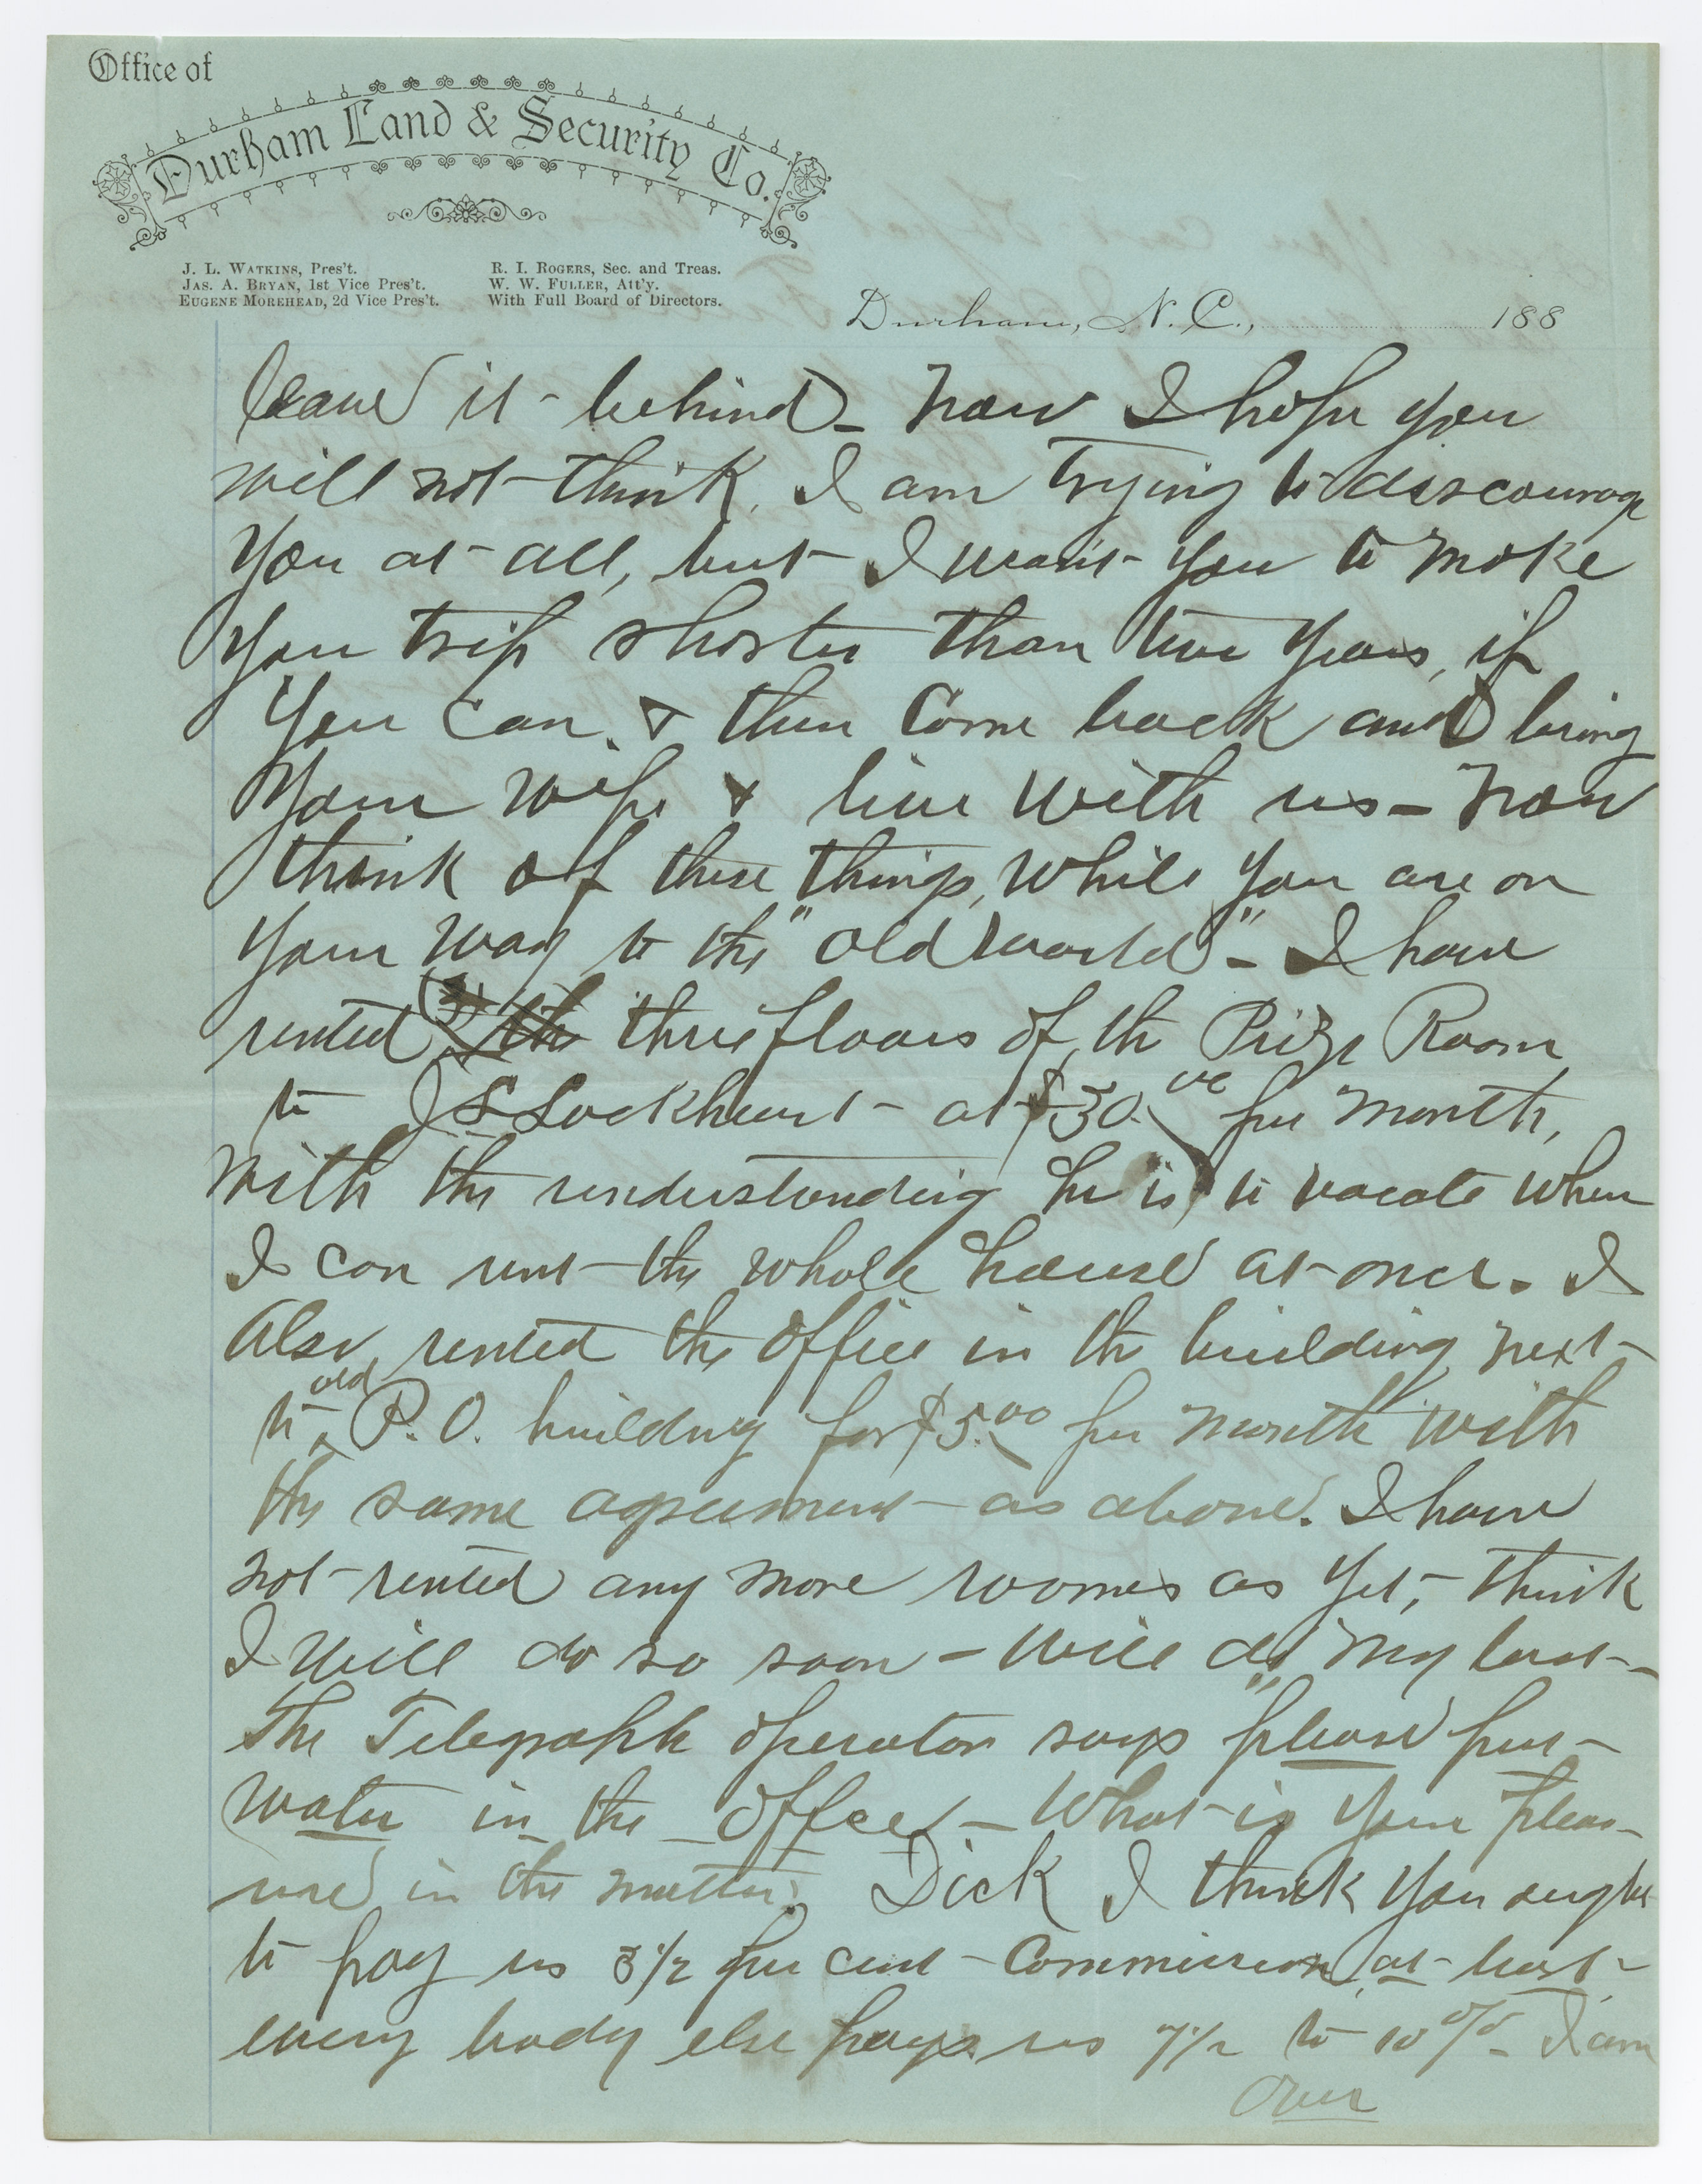 Office of
Durham Land & Security Co.
J. L. Watkins, Pres't.
Jas. A. Bryan, 1st Vice Pres't.
Eugene Morehead, 2d Vice Pres't.
R. I. Rogers, Sec. and Treas.
W. W. Fuller, Att'y.
With Full Board of Directors.
Durham, N. C., 188
leave it behind – Now I hope you
will not think, I am trying to discourage
you at all, but I want you to make
you trip shorter than two years, if
you can. & then come back and bring
your wife & live with us – Now
think of these things, while you are on
your way to the "old world" – I have
rented (3) the three floors of the Prize Room
to J S Lockhart at $30.00 per month,
with the understanding he is to vacate when
I can rent the whole house at once. I
also rented the office in the building next
to old P.O. building for $5.00 per month with
the same agreement as above. I have
not rented any more roomes as yet, think
I will do so soon – will do my best –
The Telegraph operator says "please put
water in the office – What is your pleas-
ure in the matter. Dick I think you ought
to pay us 3 1/2 per cent Commission, at least
every body else pays us 7 1/2 to 10% – I am
Over